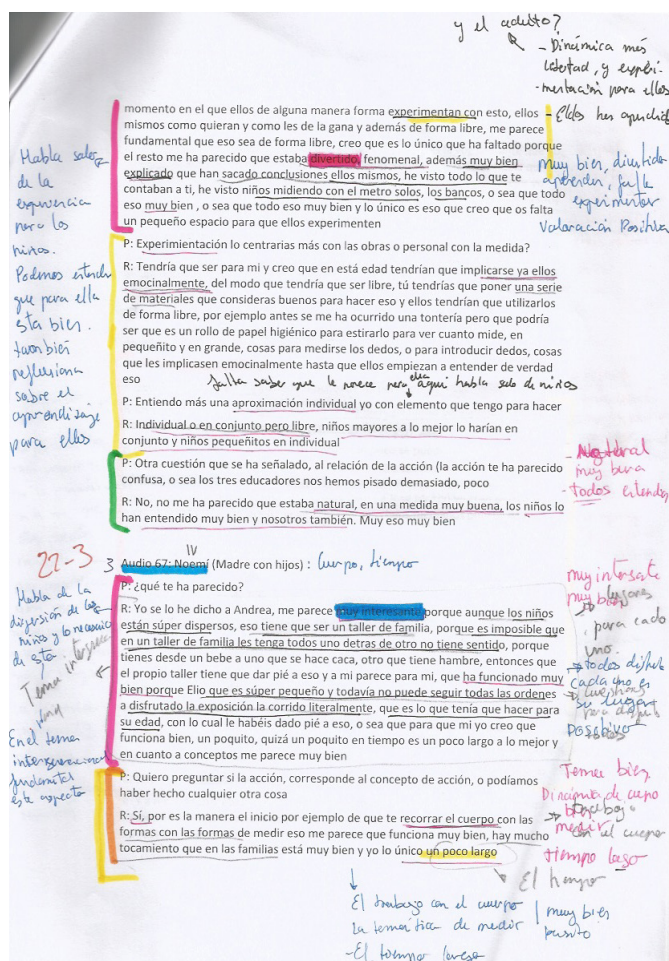 y el adulto?
- Dinámica más
libertad, y experi-
-mentación para ellos
- Ellos han aprendido
momento en el que ellos de alguna manera forma experimentan con esto, ellos
mismos como quieran y como les de la gana y además de forma libre, me parece
fundamental que eso sea de forma libre, creo que es lo único que ha faltado porque
el resto me ha parecido que estaba divertido, fenomenal, además muy bien
explicado que han sacado conclusiones ellos mismos, he visto todo lo que te
contaban a ti, he visto niños midiendo con el metro solos, los bancos, o sea que todo
eso muy bien , o sea que todo eso muy bien y lo único es eso que creo que os falta
un pequeño espacio para que ellos experimenten
muy bien, divertido
aprender, falta
experimentar
Valoración Positiva
Habla solo
de la
experiencia
para los
niños.
Podemos entender
que para ella
esta bien.
tambien
reflexiona
sobre el
aprendizaje
para ellos
P: Experimientación lo contrarias más con las obras o personal con la medida?
R: Tendría que ser para mi y creo que en está edad tendrían que implicarse ya ellos
emocinalmente, del modo que tendría que ser libre, tú tendrías que poner una serie
de materiales que consideras buenos para hacer eso y ellos tendrían que utilizarlos
de forma libre, por ejemplo antes se me ha ocurrido una tontería pero que podría
ser que es un rollo de papel higiénico para estirarlo para ver cuanto mide, en
pequeñito y en grande, cosas para medirse los dedos, o para introducir dedos, cosas
que les implicasen emocinalmente hasta que ellos empiezan a entender de verdad
eso
falta saber que le parece para ella aqui habla solo de niños
P: Entiendo más una aproximación individual yo con elemento que tengo para hacer
R: Individual o en conjunto pero libre, niños mayores a lo mejor lo harían en
conjunto y niños pequeñitos en individual
P: Otra cuestión que se ha señalado, al relación de la acción (la acción te ha parecido
confusa, o sea los tres educadores nos hemos pisado demasiado, poco
R: No, no me ha parecido que estaba natural, en una medida muy buena, los niños lo
han entendido muy bien y nosotros también. Muy eso muy bien
- Natural
muy buena
- todos entienden
22-3
IV
3 Audio 67: Noemí (Madre con hijos) : Cuerpo, tiempo
P: ¿qué te ha parecido?
R: Yo se lo he dicho a Andrea, me parece muy interesante porque aunque los niños
están súper dispersos, eso tiene que ser un taller de familia, porque es imposible que
en un taller de familia les tenga todos uno detras de otro no tiene sentido, porque
tienes desde un bebe a uno que se hace caca, otro que tiene hambre, entonces que
el propio taller tiene que dar pié a eso y a mi parece para mi, que ha funcionado muy
bien porque Elio que es súper pequeño y todavía no puede seguir todas las ordenes
a disfrutado la exposición la corrido literalmente, que es lo que tenía que hacer para
su edad, con lo cual le habéis dado pié a eso, o sea que para que mi yo creo que
funciona bien, un poquito, quizá un poquito en tiempo es un poco largo a lo mejor y
en cuanto a conceptos me parece muy bien
Habla de la
dispersión de los
niños y lo necesario
de esta
En el tema
intergeneracional
fundamental
este aspecto
muy interesante
muy bien
lugares
para cada
uno.
cada uno en
su lugar
Positivo
P: Quiero preguntar si la acción, corresponde al concepto de acción, o podíamos
haber hecho cualquier otra cosa
R: Sí, por es la manera el inicio por ejemplo de que te recorrar el cuerpo con las
formas con las formas de medir eso me parece que funciona muy bien, hay mucho
tocamiento que en las familias está muy bien y yo lo único un poco largo
Tema bien
Dinámica de cuerpo
medir
con el cuerpo
tiempo largo
El tiempo
El trabajo con el cuerpo
La temática de medir
muy bien
- El tiempo largo